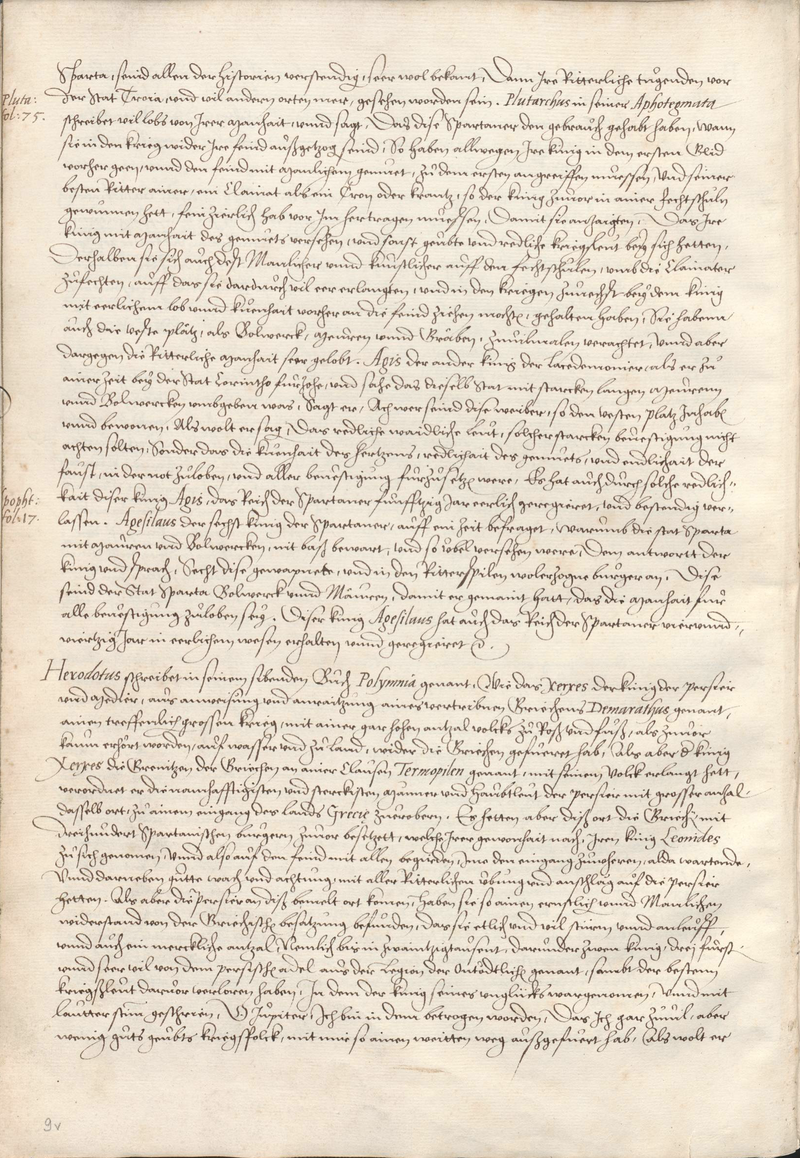 Sparta, seind allen der historien verstendig, seer wol bekant, Dann Ire Ritterliche tugenden vor
Pluta:
fol: 75.
der Stat Troia, und vil andern orten mer, gesehen worden sein. Plutarchus in seiner Aphotegmata
schreibet vil lobs von Irer manhait, unnd sagt, Das dise Spartaner den gebrauch gehabt haben, wann
sie in den krieg wider Ire feind außgezogen seind, So haben allwegen Ire künig in dem ersten Glid
vorher geen, unnd den feind mit manlichem gemuet, zu dem ersten angreiffen muessen, Und seiner
besten Ritter ainer, ein Clainat als ein Cron oder krantz, so der künig zuvor in ainer fechtschuln
gewunnen hett, fein zierlich hab vor Im hertragen muessen, Damit sie anzaigten, Das Ire
künig mit manhait des gemuets versehen, und sonst geubte und redliche kriegsleut bey sich hetten,
Derhalben sie sich auch dest Manlicher unnd kunstlicher auff den fechtschulen, umb die Clainater
zufechten, auff das sie dardurch vil eer erlangten, und in den kriegen zunechst bey dem künig
mit eerlichem lob unnd kuenhait vorher an die feind ziehen mochten, gehalten haben, Sie habenn
auch die veste platz, als Bolwerck, mauren unnd Graben, zumalen verachtet, Unnd aber
dargegen die Ritterliche manhait seer gelobt. Agis der ander künig der Lacedemonier, als er zu
ainer zeit bey der Stat Corintho furzohe, und sahe das dieselb Stat mit starcken langen mauren
unnd Bolwercken umbgeben was, Sagt er, Ach wer seind dise weiber, so den vesten platz Inhaben
unnd bewonen, Als wolt er sagen, Das redliche waidliche leut, solcher starcken bevestigung nicht
achten solten, Sonder das die kuenhait des hertzens, redlichait des gemuets, und endlichait der
faust, in der not zuloben, und aller bevestigung furzusetzen were, Es hat auch durch solche redlich-
Apopht:
fol: 17.
kait diser künig Agis, das Reich der Spartaner funfftzig Jar eerlich geregieret, und bestendig ver-
lassen. Agesilaus der sechst künig der Spartaner, auff ein zeit befraget, Warumb die stat Sparta
mit mauren und Bolwercken, nit baß bewart, und so ubel versehen were, Dem antwort der
künig und sprach, Secht dise gewapnete, und in den Ritterspilen wolerzogne burger an, Dise
seind der Stat Sparta Bolwerck unnd Mauren, damit er gemaint hatt, das die manhait fur
alle bevestigung zuloben sey. Diser künig Agesilaus hat auch das Reich der Spartaner vierundt-
viertzig Jar in eerlichem wesen erhalten unnd geregieret
Herodotus schreibet in seinem sibenden Buch Polymnia genant, Wie das Xerxes der künig der Persier
und Medier, aus anweisung und anraitzung aines vertribnen Griechens Demarathus genant,
ainen treffenlich grossen krieg, mit ainer gar hohen antzal volcks zu Roß und fuß, als zuvor
kaum erhört worden, auf wasser und zu land, wider die Griechen gefueret hab, Als aber der künig
Xerxes die Grenitzen der Griechen an ainer Clausen Termopilen genant, mit seinem Volck erlangt hett,
verordnet er die namhafftigisten und sterckisten männer und haubtleut der Persier mit grosser anzal,
dasselb ort, zu ainem eingang des lands Grecie zuerobern, Es hetten aber diß ort die Griechen mit
dreihundert Spartanischen burgern zuvor besetzett, welche Irer gewonhait nach, Iren künig Leonides
zu sich genomen, Unnd also auf den feind mit allen begirden, Ime den eingang zuwehren, alda wartende,
Unnd darneben gutte wach und achtung, mit aller Ritterlichen übung und anschlag auf die Persier
hetten. Als aber die Persier an diß bemelt ort komen, haben sie so ainen ernstlich unnd Manlichen
widerstand von der Griechischen besatzung befunden, das sie etlich und vil stürm unnd anleuff,
unnd auch ein merckliche antzal, Nemlich bis in zwaintzigtausent, darunder zwen künig, drei furst
unnd seer vil von dem persischen adel aus der Legion, der Ontödtlichen genant, sambt der bestenn
kriegßleut darvor verloren haben, In dem der künig seines unglücks wargenomen, Unnd mit
lautter stim geschrien, O Jupiter, Ich bin in dem betrogen worden, Das Ich gar zuvil, aber
wenig guts geubts kriegsfolck, mit mir so ainen weitten weg außgefuert hab, Als wolt er
9v